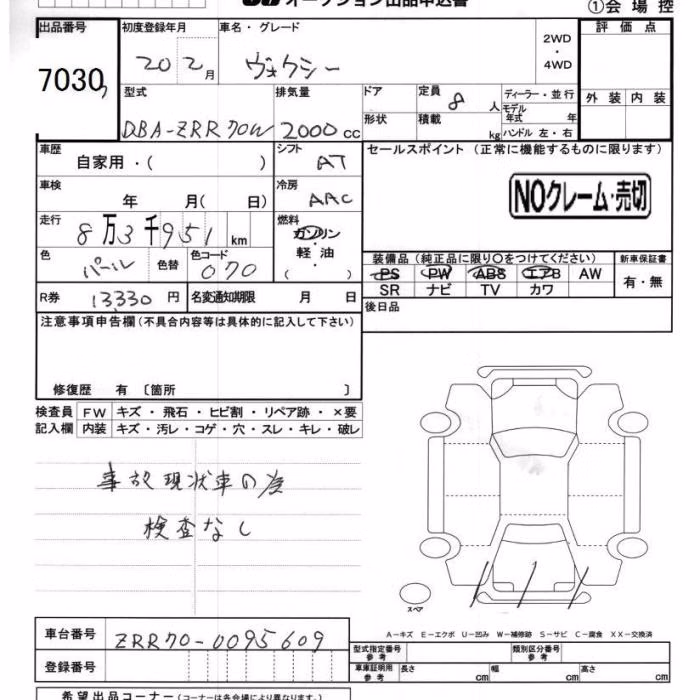 オークション出品申込書 ①会場控
出品番号 初度登録年月 車名・グレード 2WD ・ 4WD 評価点
7030 20 2月 ヴォクシー
型式 排気量 ドア 定員 8人 ディーラー・並行 外装 内装
DBA-ZRR70W 2000cc 形状 積載 kg モデル年式 年 ハンドル 左・右
車歴 自家用・( ) シフト AT セールスポイント (正常に機能するものに限ります)
車検 年 月( 日) 冷房 AAC NOクレーム・売切
走行 8万3千951km 燃料 ガソリン 軽油 ( ・ )
色 パール 色替 色コード 070 装備品 (純正品に限り〇をつけてください) 新車保証書
PS PW ABS エアB AW 有・無
SR ナビ TV カワ
R券 13330円 名変通知期限 月 日 後日品
注意事項申告欄(不具合内容等は具体的に記入して下さい)
修復歴 有 〔箇所 〕
検査員 FW キズ・飛石・ヒビ割・リペア跡・×要
記入欄 内装 キズ・汚レ・コゲ・穴・スレ・キレ・破レ
事故現状車の為
検査なし
スペア
A－キズ E－エクボ U－凹み W－補修跡 S－サビ C－腐食 XX－交換済
車台番号 ZRR70-0095609 型式指定番号 参考 類別区分番号 参考
登録番号 車庫証明用 参考 長さ cm 幅 cm 高さ cm
希望出品コーナー(コーナーは各会場により異なります。)